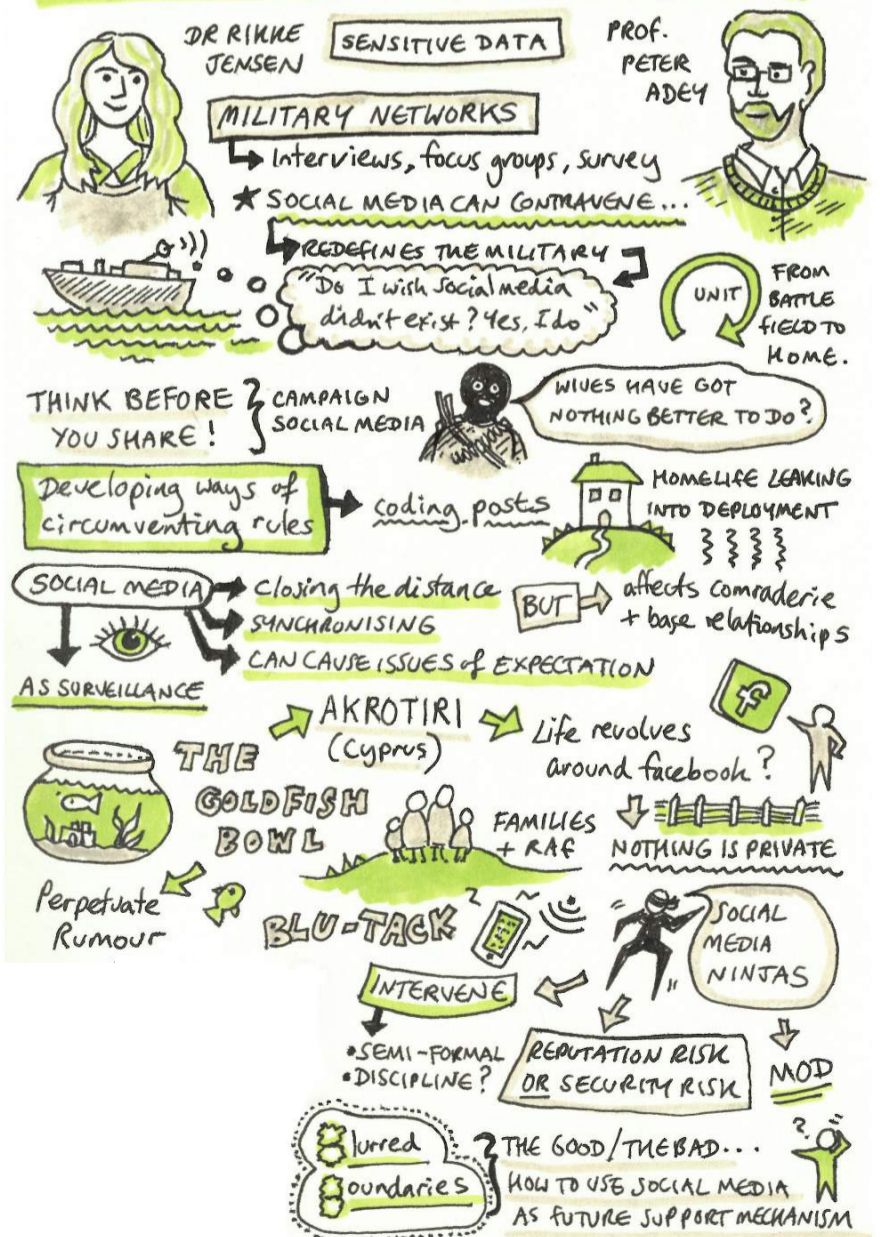 DR RIKKE
JENSEN
SENSITIVE DATA
PROF.
PETER
ADEY
MILITARY NETWORKS
Interviews, focus groups, survey
★ SOCIAL MEDIA CAN CONTRAVENE...
REDEFINES THE MILITARY
"Do I wish social media
didn't exist? Yes, I do"
UNIT
FROM
BATTLE
FIELD TO
HOME.
THINK BEFORE
YOU SHARE!
CAMPAIGN
SOCIAL MEDIA
WIVES HAVE GOT
NOTHING BETTER TO DO?
Developing ways of
circumventing rules
coding posts
HOMELIFE LEAKING
INTO DEPLOYMENT
SOCIAL MEDIA
closing the distance
SYNCHRONISING
CAN CAUSE ISSUES of EXPECTATION
AS SURVEILLANCE
BUT
affects comraderie
+ base relationships
AKROTIRI
(Cyprus)
Life revolves
around facebook?
f
THE
GOLDFISH
BOWL
FAMILIES
+ RAF
NOTHING IS PRIVATE
Perpetuate
Rumour
BLU-TACK
SOCIAL
MEDIA
NINJAS
INTERVENE
•SEMI-FORMAL
•DISCIPLINE?
REPUTATION RISK
OR SECURITY RISK
MOD
Blurred
Boundaries
THE GOOD/THE BAD...
HOW TO USE SOCIAL MEDIA
AS FUTURE SUPPORT MECHANISM
?